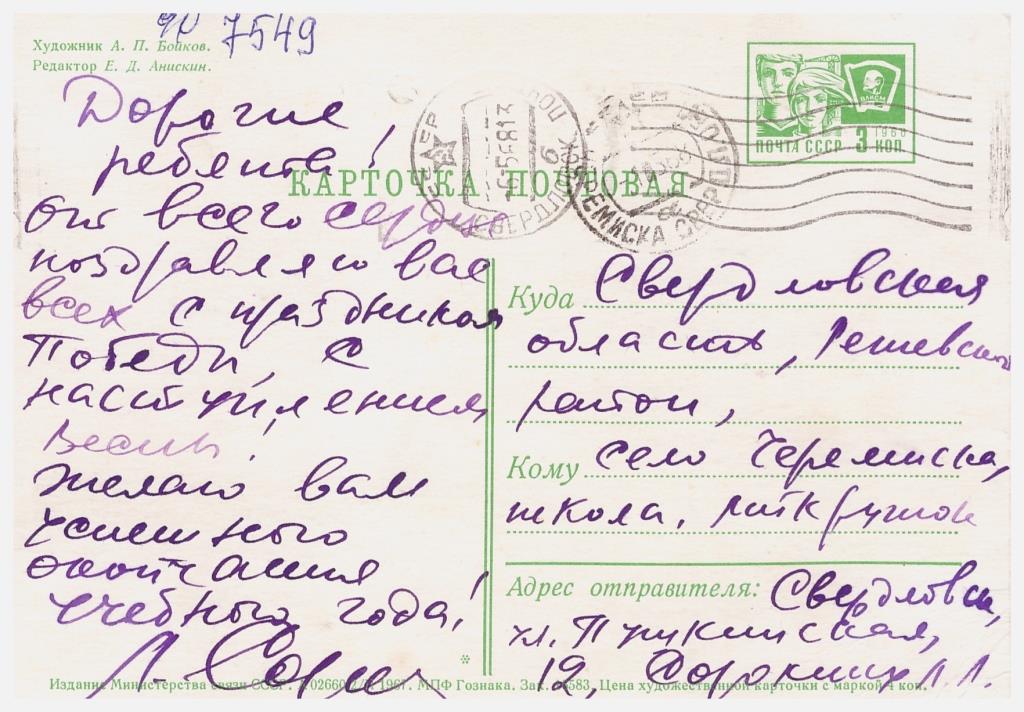 7549
Художник А. П. Бойков.
Редактор Е. Д. Анискин.
ВЛКСМ
1968
ПОЧТА СССР 3 КОП.
КАРТОЧКА ПОЧТОВАЯ
ЧЕРЕМИСКА СВЕРДЛ
Дорогие
ребята!
От всего сердца
поздравляю вас
всех с праздником
Победы, с
наступлением
весны!
Желаю вам
успешного
окончания
учебного года!
Л. Сорок
Куда Свердловская
область, Режевской
район,
Кому село Черемиска,
школа, литкружок
Адрес отправителя: Свердловск,
ул. Пушкинская,
12, Сорокин Л. Л.
Издание Министерства связи СССР. 1967. МПФ Гознака. Зак. Цена художественной карточки с маркой 4 коп.